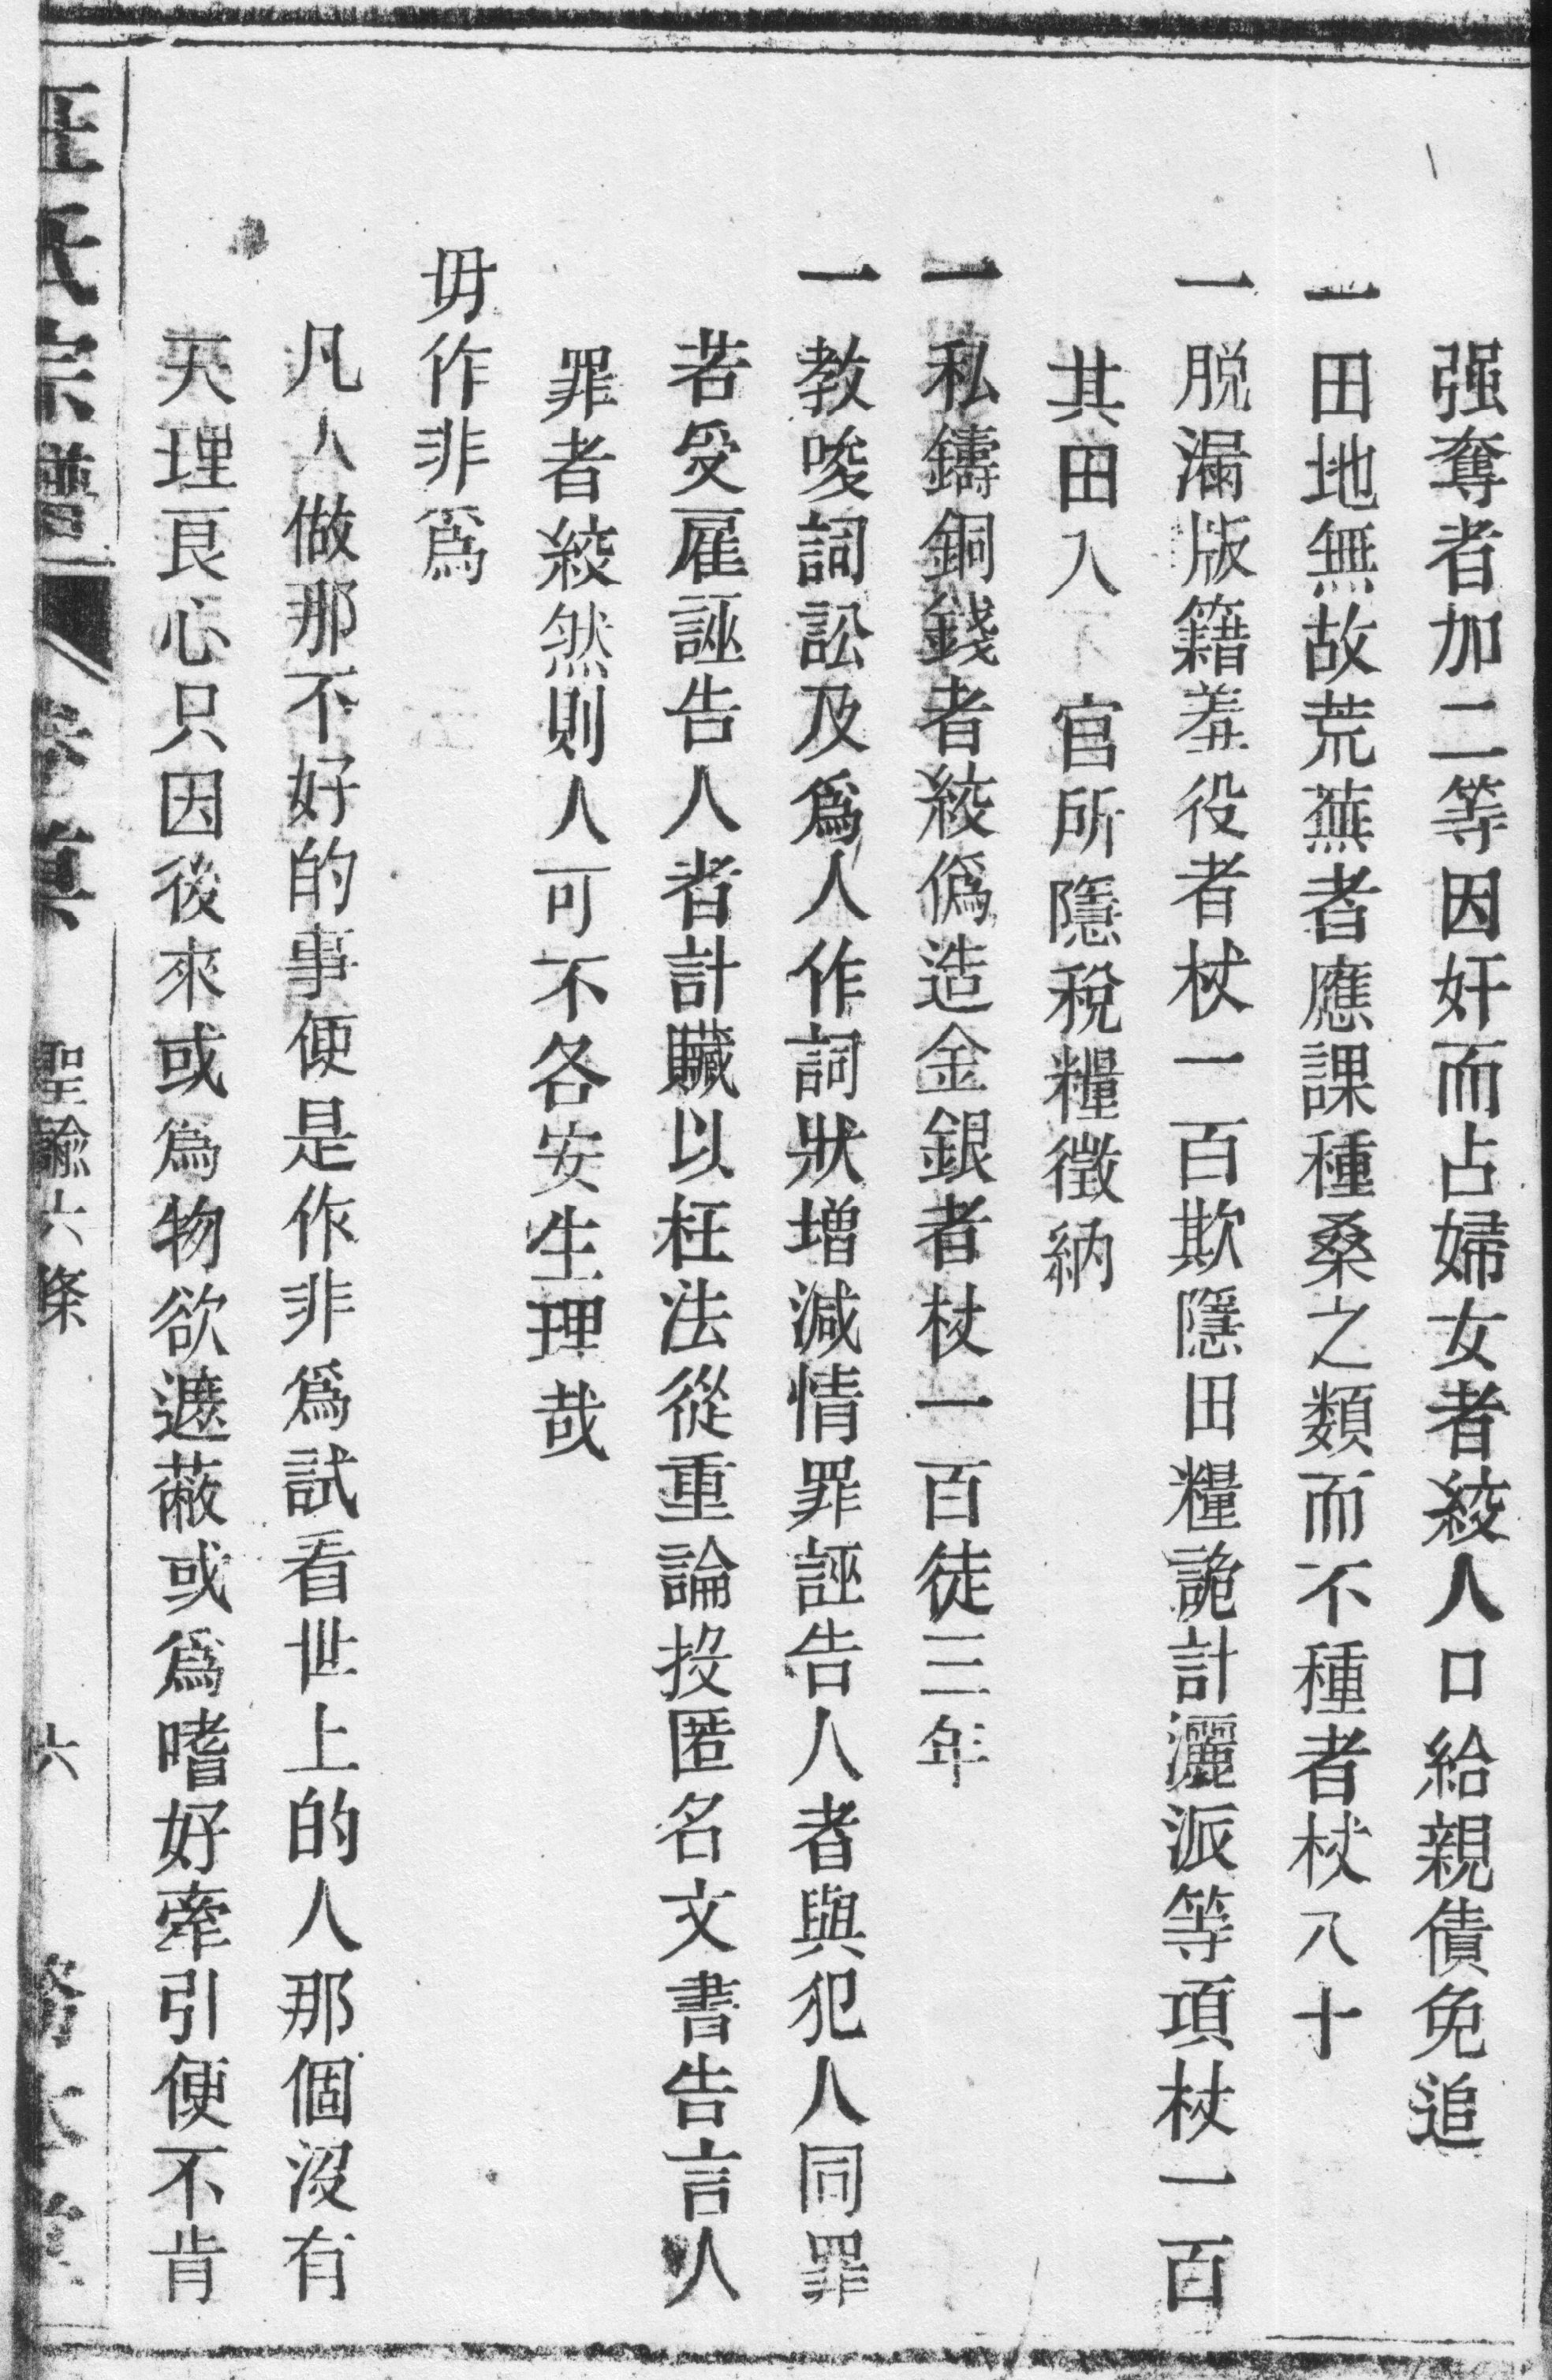 强奪者加二等因奸而占婦女者絞人口給親債免追
一田地無故荒蕪者應課種桑之類而不種者杖八十
一脱漏版籍差役者杖一百欺隱田糧詭計灑派等項杖一百
其田入官所隱稅糧徵納
一私鑄銅錢者絞僞造金銀者杖一百徒三年
一教唆詞訟及爲人作詞狀增減情罪誣告人者與犯人同罪
若受雇誣告人者計贓以枉法從重論投匿名文書告言人
罪者絞然則人可不各安生理哉
毋作非爲
凡人做那不好的事便是作非爲試看世上的人那個沒有
天理良心只因後來或爲物欲遮蔽或爲嗜好牽引便不肯
氏宗譜 卷 聖諭六條 六 堂